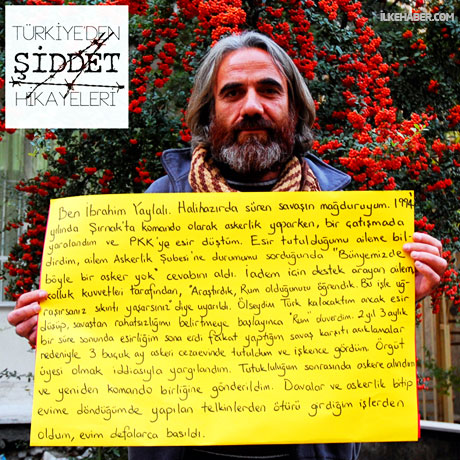 İLKEHABER.COM
TÜRKİYE'DEN
ŞİDDET
HİKAYELERİ
Ben İbrahim Yaylalı. Halihazırda süren savaşın mağduruyum. 1994
yılında Şırnak'ta komando olarak askerlik yaparken, bir çatışmada
yaralandım ve PKK'ya esir düştüm. Esir tutulduğumu aileme bil-
dirdim, ailem Askerlik Şubesi'ne durumu sorduğunda "Bünyemizde
böyle bir asker yok" cevabını aldı. İadem için destek arayan ailem
kolluk kuvvetleri tarafından, "Araştırdık, Rum olduğunuzu öğrendik. Bu işle uğ-
raşırsanız sıkıntı yaşarsınız" diye uyarıldı. Ölseydim Türk kalacaktım ancak esir
düşüp, savaştan rahatsızlığımı belirtmeye başlayınca "Rum" oluverdim. 2 yıl 3 aylık
bir süre sonunda esirliğim sona erdi fakat yaptığım savaş karşıtı açıklamalar
nedeniyle 3 buçuk ay askeri cezaevinde tutuldum ve işkence gördüm. Örgüt
üyesi olmak iddiasıyla yargılandım. Tutukluluğum sonrasında askere alındım
ve yeniden komando birliğine gönderildim. Davalar ve askerlik bitip
evime döndüğümde yapılan telkinlerden ötürü girdiğim işlerden
oldum, evim defalarca basıldı.